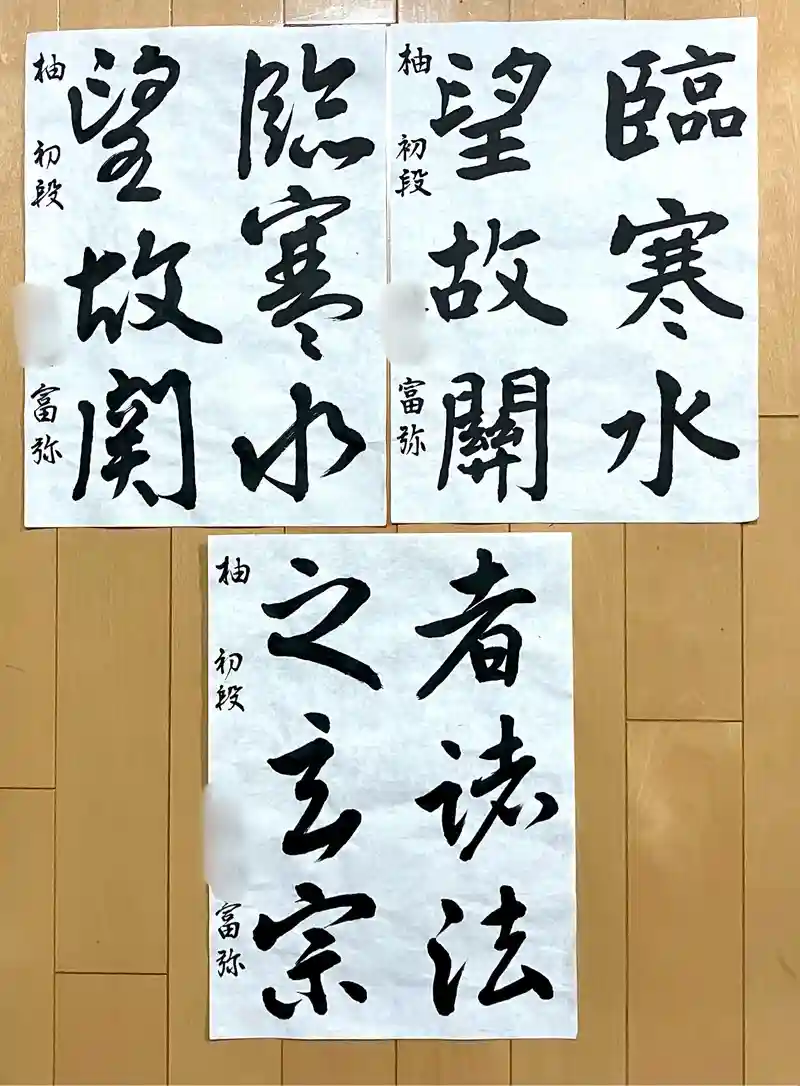 臨寒水
望故関
柚 初段 富弥
臨寒水
望故關
柚 初段 富弥
者諸法
之玄宗
柚 初段 富弥